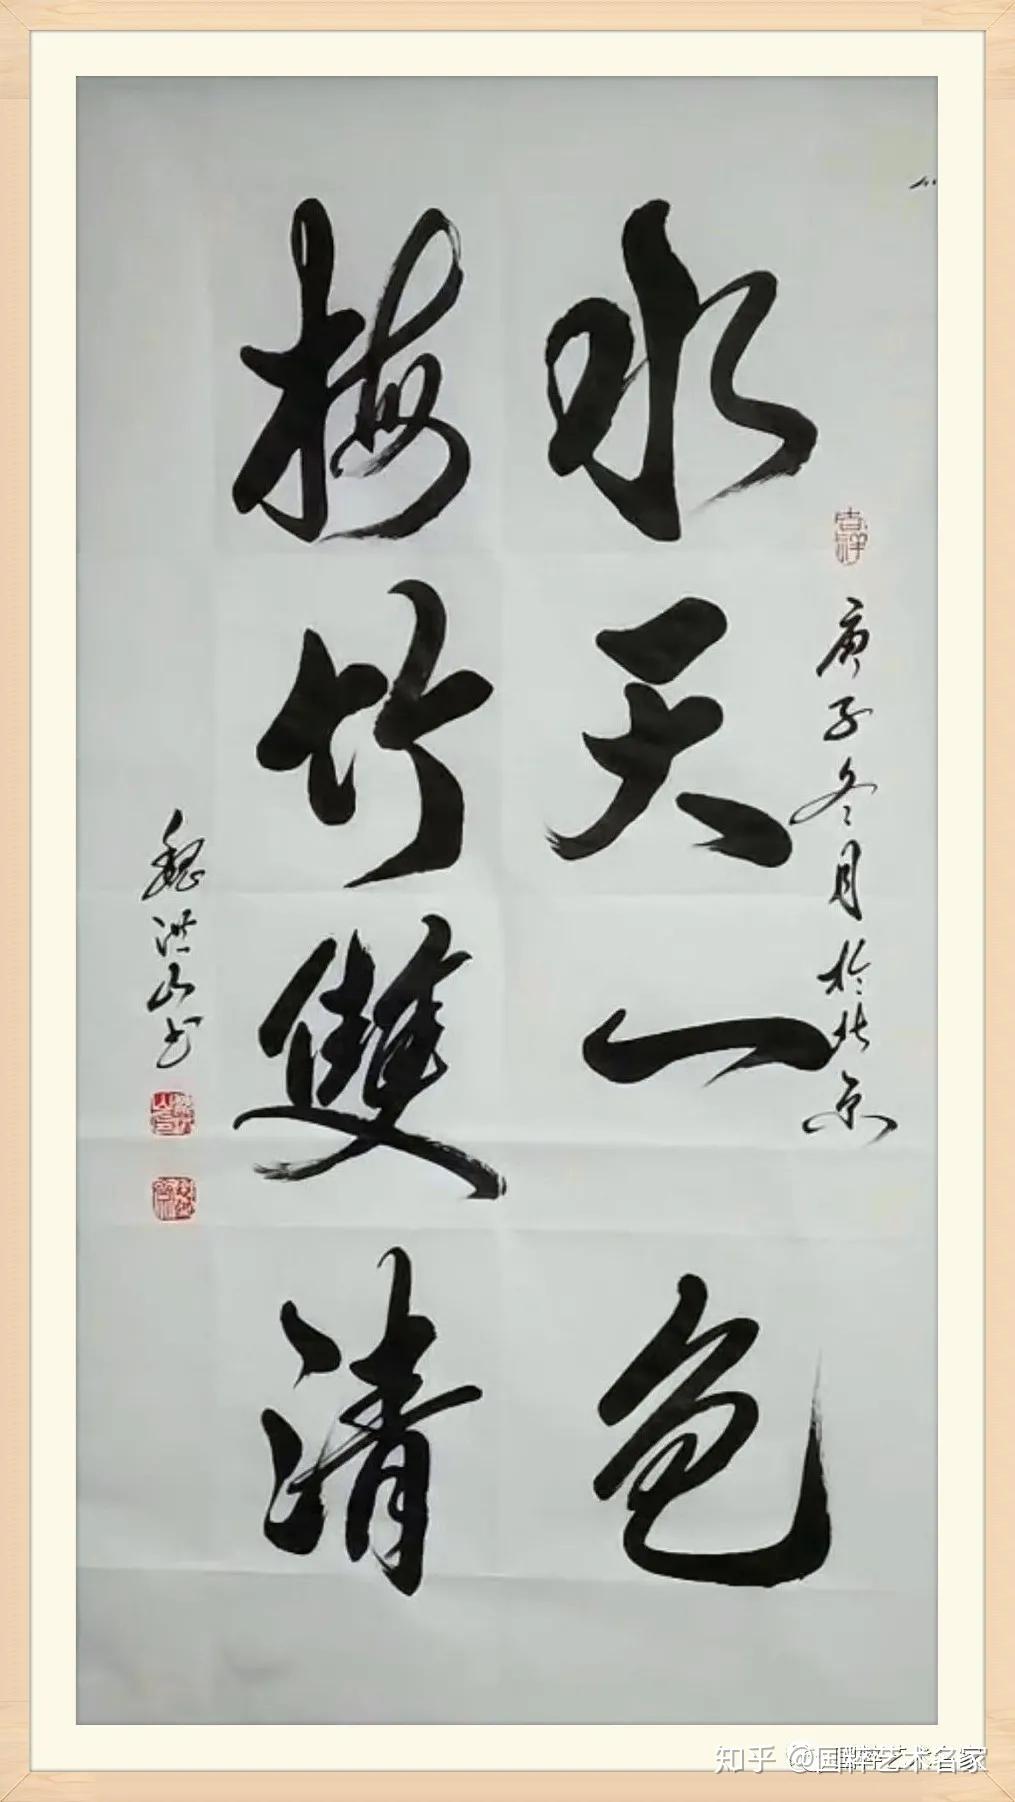 吉祥
庚子冬月於北京
水天一色
梅竹雙清
魏洪山书
知乎 @国粹艺术名家